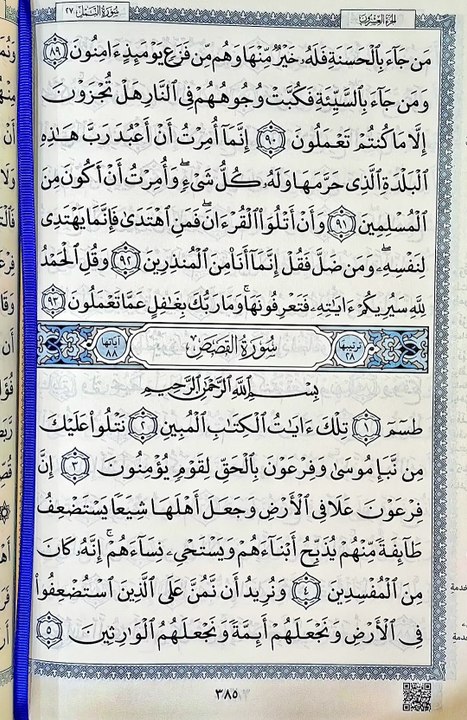 الجزء العشرون
سورة النمل ٢٧
مَن جَآءَ بِٱلْحَسَنَةِ فَلَهُۥ خَيْرٌ مِّنْهَا وَهُم مِّن فَزَعٍ يَوْمَئِذٍ ءَامِنُونَ ٨٩
وَمَن جَآءَ بِٱلسَّيِّئَةِ فَكُبَّتْ وُجُوهُهُمْ فِى ٱلنَّارِ هَلْ تُجْزَوْنَ
إِلَّا مَا كُنتُمْ تَعْمَلُونَ ٩٠ إِنَّمَآ أُمِرْتُ أَنْ أَعْبُدَ رَبَّ هَٰذِهِ
ٱلْبَلْدَةِ ٱلَّذِى حَرَّمَهَا وَلَهُۥ كُلُّ شَىْءٍ ۖ وَأُمِرْتُ أَنْ أَكُونَ مِنَ
ٱلْمُسْلِمِينَ ٩١ وَأَنْ أَتْلُوَا۟ ٱلْقُرْءَانَ ۖ فَمَنِ ٱهْتَدَىٰ فَإِنَّمَا يَهْتَدِى
لِنَفْسِهِۦ ۖ وَمَن ضَلَّ فَقُلْ إِنَّمَآ أَنَا۠ مِنَ ٱلْمُنذِرِينَ ٩٢ وَقُلِ ٱلْحَمْدُ
لِلَّهِ سَيُرِيكُمْ ءَايَٰتِهِۦ فَتَعْرِفُونَهَا ۚ وَمَا رَبُّكَ بِغَٰفِلٍ عَمَّا تَعْمَلُونَ ٩٣
ترتيبها ٢٨ سُورَةُ القَصَصِ آياتها ٨٨
بِسْمِ ٱللَّهِ ٱلرَّحْمَٰنِ ٱلرَّحِيمِ
طسٓمٓ ١ تِلْكَ ءَايَٰتُ ٱلْكِتَٰبِ ٱلْمُبِينِ ٢ نَتْلُوا۟ عَلَيْكَ
مِن نَّبَإِ مُوسَىٰ وَفِرْعَوْنَ بِٱلْحَقِّ لِقَوْمٍ يُؤْمِنُونَ ٣ إِنَّ
فِرْعَوْنَ عَلَا فِى ٱلْأَرْضِ وَجَعَلَ أَهْلَهَا شِيَعًا يَسْتَضْعِفُ
طَآئِفَةً مِّنْهُمْ يُذَبِّحُ أَبْنَآءَهُمْ وَيَسْتَحْىِۦ نِسَآءَهُمْ ۚ إِنَّهُۥ كَانَ
مِنَ ٱلْمُفْسِدِينَ ٤ وَنُرِيدُ أَن نَّمُنَّ عَلَى ٱلَّذِينَ ٱسْتُضْعِفُوا۟
فِى ٱلْأَرْضِ وَنَجْعَلَهُمْ أَئِمَّةً وَنَجْعَلَهُمُ ٱلْوَٰرِثِينَ ٥
٣٨٥